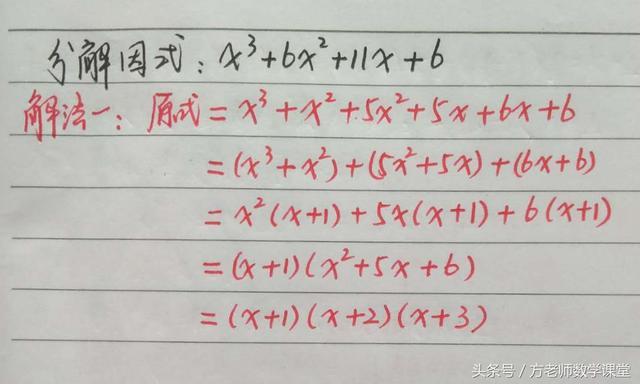 分解因式：x³+6x²+11x+6
解法一：原式=x³+x²+5x²+5x+6x+6
=(x³+x²)+(5x²+5x)+(6x+6)
=x²(x+1)+5x(x+1)+6(x+1)
=(x+1)(x²+5x+6)
=(x+1)(x+2)(x+3)
头条号/方老师数学课堂